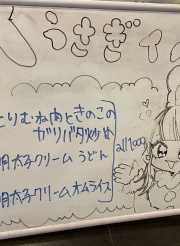 うさぎ
とりむね肉ときのこの
ガリバタ炒め
明太子クリームうどん
明太子クリームオムライス
all ¥1000